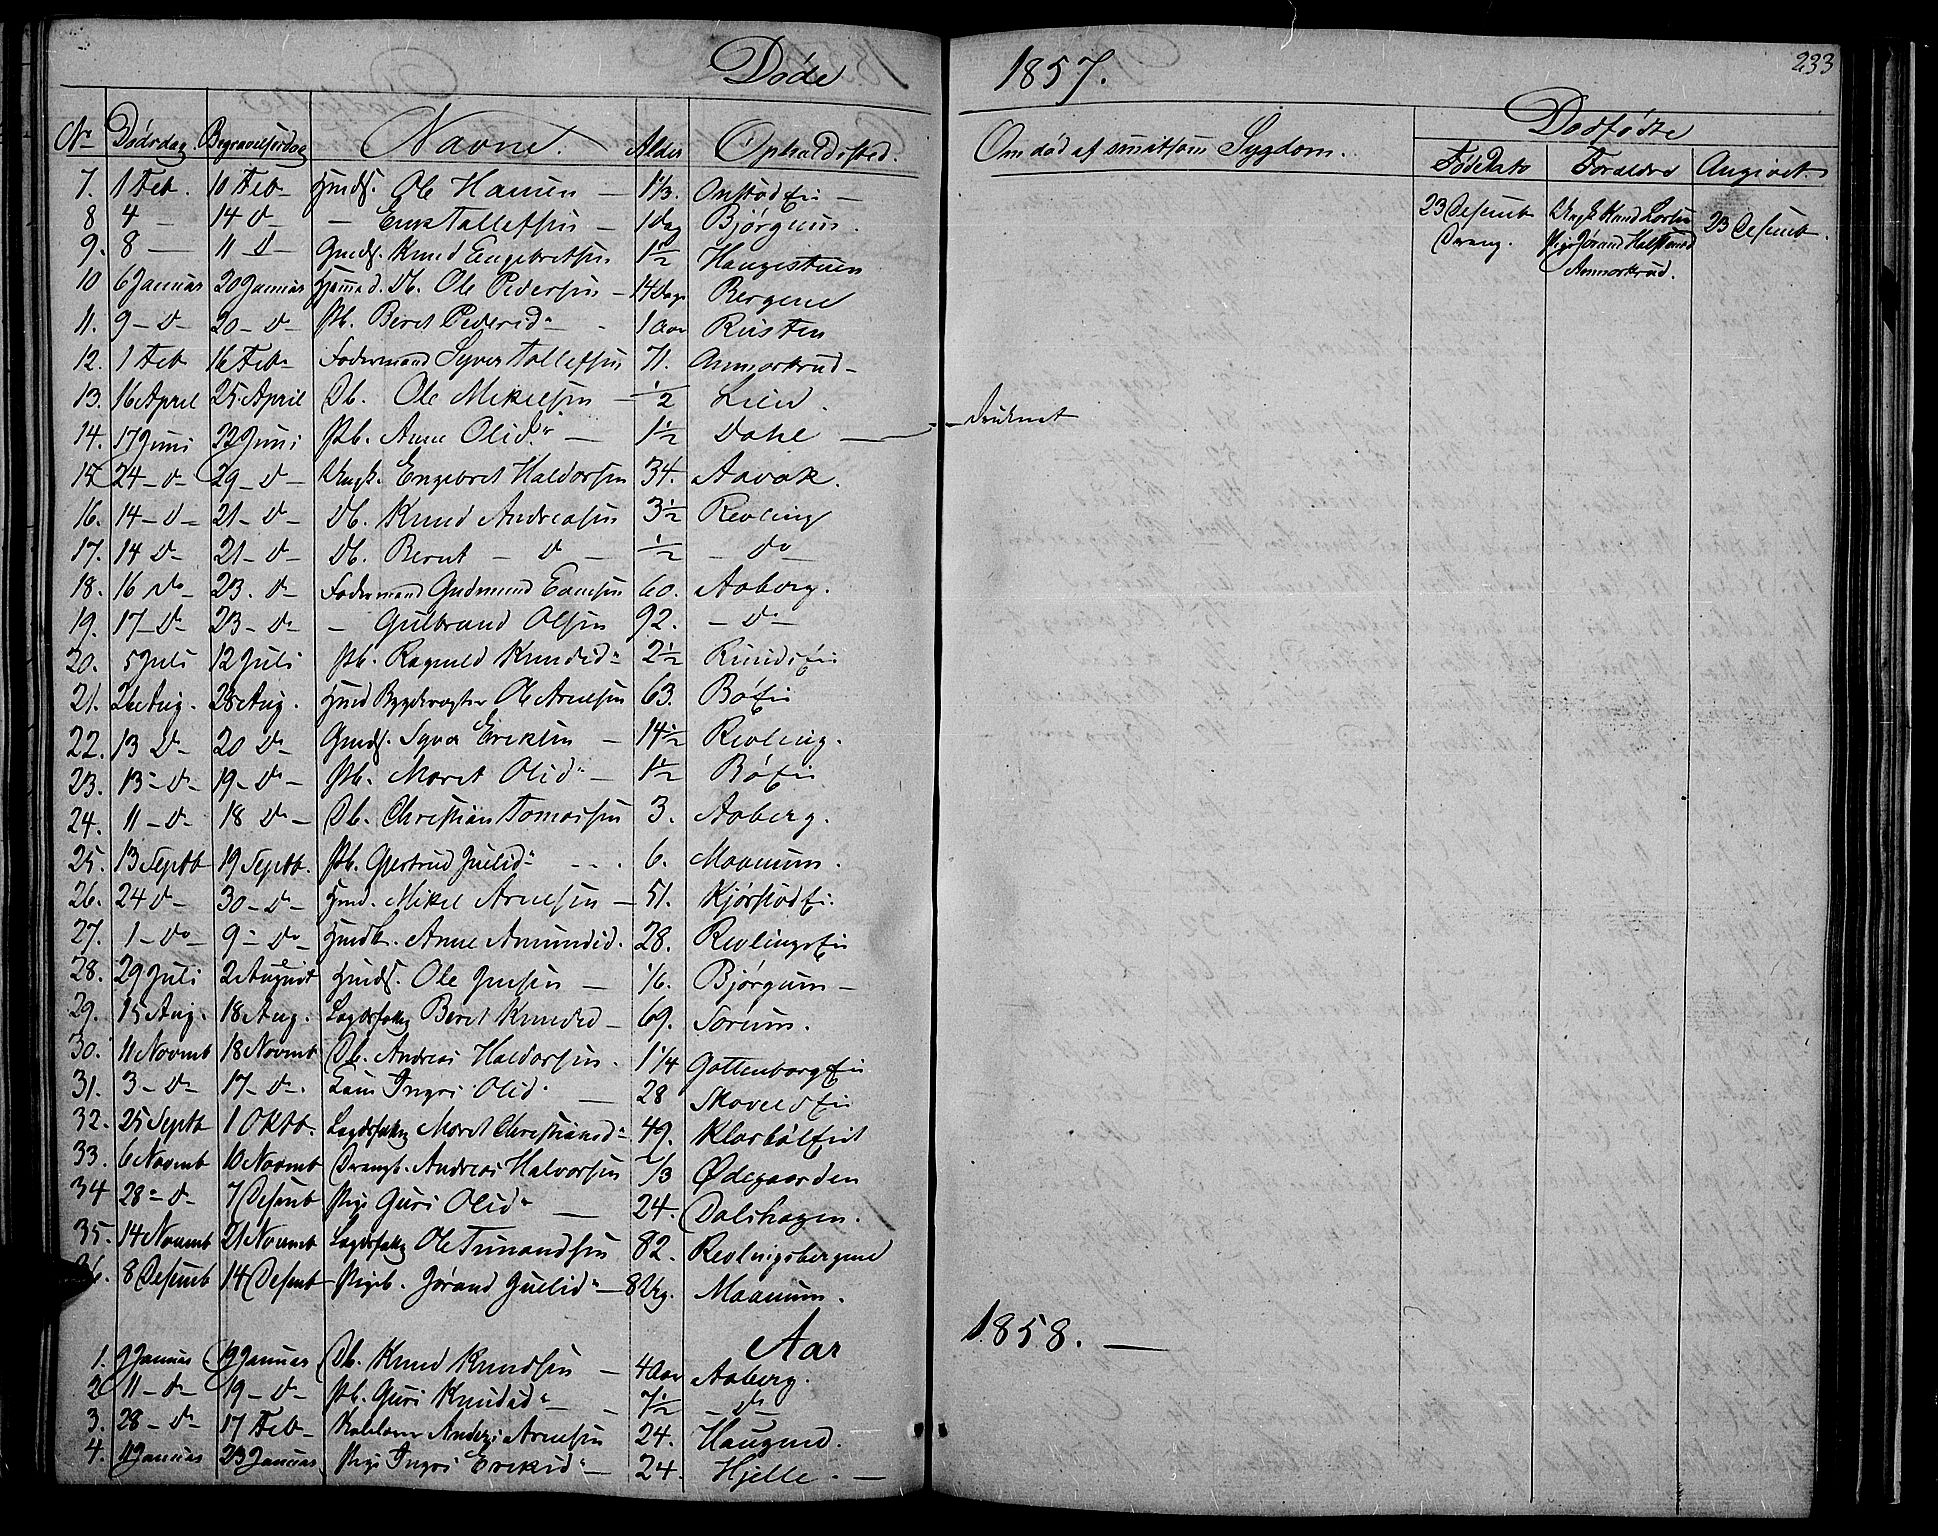 Døde 1857.
233
No Dødsdag Begravelsesdag Navne. Alder Opholdssted. Om død af smitsom Sygdom.
Dødfødte
Fødedato Foraldre Angivet.
7. 1 Feb. 10 Feb Ole Hansen — 1/3. Onstad Ei —
8 4 — 14 d — Erik Tollefsen — 1 Dag Bjørgum.
9. 8 — 11 d — Gmds. Knud Engebretsen 1½ Haugestuen
10 6 Januar 20 Januar Db. Ole Pedersen — 14 Dage Bergene
11. 9 — d — 20 — d — Pb. Beret Pedersd — 1 Aar Rusten
12. 1 Feb 16 Feb — Fodermand Syver Tollefsen 71. Ammerkrud —
13. 16 April 25 April Db. Ole Mikelsen — ½ Lien.
14. 17 Juni 22 Juni Pb. Anne Olsd — 1½ Dahl — druknet
17 24 — d — 29 — d — Ungk. Engebret Haldorsen 34. Aavak.
16. 14 — d — 21 — d — Db. Knud Andreasen 3½ Revling
17. 14 d — 21 — d — Db. Bernt — d — ½ — do
18. 16 do 23. d — Fodermand Gudmund 60. Aaberg.
19. 17 — d — 23 — d — — Gulbrand Olsen 92. — d —
20. 5 Juli 12 Juli Pb. Ragnild Knudsd 2½ Runds Ei
21. 26 Aug. 28 Aug. Hmd Bygdevægter Ole Arnesen 63. Bø Ei
22. 13 d — 20 d — Gmds. Syver Eriksen — 14½ Revling.
23. 13 — d — 19 — d — Pb. Maret Olsd — 1½ Bø Ei
24. 11 — d — 18 d — Db. Christian Tomassen 3. Aaberg.
25. 13 Septb 19 Septb. Pb. Gjertrud Juelsd — 6. Maanum.
26. 24 d — 30 — d — Hmd. Mikel Arnesen — 51. Kjørstad Ei.
27. 1 — do — 9 — do — Hmdk. Anne Amundsd. 28. Revlings Ei
28. 29 Juli 2 August Hmds. Ole Jensen — 1/6. Bjørgum —
29. 15 Aug. 18 Aug. Lægdsfattig Beret Knudsd — 69. Sørum.
30. 11 Novmb 18 Novmb Db. Andreas Haldorsen. 1 1/4 Gottenborg Ei
31. 3 — d — 17 — d —. Ingri Olsd — 28 Skoveld Ei
32. 25 Septb 1 Oktb. Lægdsfattig Maret Christiansd 49. Klarbøl Eiet
33. 6 Novmb 10 Novmb Drengb. Andreas Halvorsen 1/3 Ødegaarden
34 28 — d — 7 Desemb Pige Guri Olsd — 24. Dalshagen.
35. 14 Novmb 21 Novmb Lægdsfattig Ole Timandsen 82. Revlingsbergene
36. 8 Desemb 14 Desemb Pigeb. Jørand Juelsd — 8 Ug. Maanum.
23 Desemb Dreng. Ungk Knud Larsen Pige Jørand Halstensd Ammerkrud. 23 Desemb.
Aar 1858. —
1. 9 Januar 19 Januar Db. Knud Knudsen — 4 Aar Aaberg.
2 11 — d — 19 — d — Pb. Guri Knudsd — 7½ — d —
3. 28 — d — 17 Feb — Anders Arnesen 24. Haugend.
4. 11 Januar 23 Januar Pige Ingri Eriksd — 24. Hjelle. —